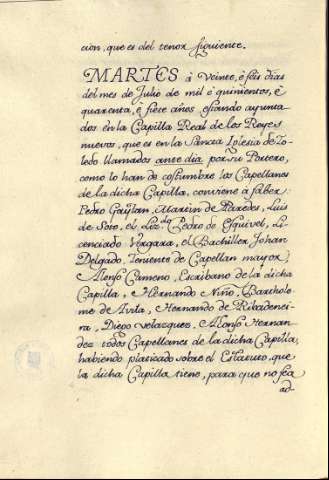 cion, que es del tenor siguiente.
MARTES à veinte, è seis dias
del mes de Julio de mil è quinientos, è
quarenta, è siete años, estando ayunta-
dos en la Capilla Real de los Reyes
nuevos, que es en la Sancta Iglesia de To-
ledo llamados ante dia por su Portero,
como lo han de costumbre los Capellanes
de la dicha Capilla, conviene à saber:
Pedro Gaytan, Martin de Paredes, Luis
de Soto, el Liz.do Pedro de Esquivel, Li-
cenciado Vergara, el Bachiller Johan
Delgado, Teniente de Capellan mayor,
Alonso Cameno, Escribano de la dicha
Capilla, Hernando Niño, Bartholo-
me de Avila, Hernando de Ribadenei-
ra, Diego Velazques, Alonso Hernan-
dez todos Capellanes de la dicha Capilla,
habiendo platicado sobre el Estatuto, que
la dicha Capilla tiene, para que no sea
ad-